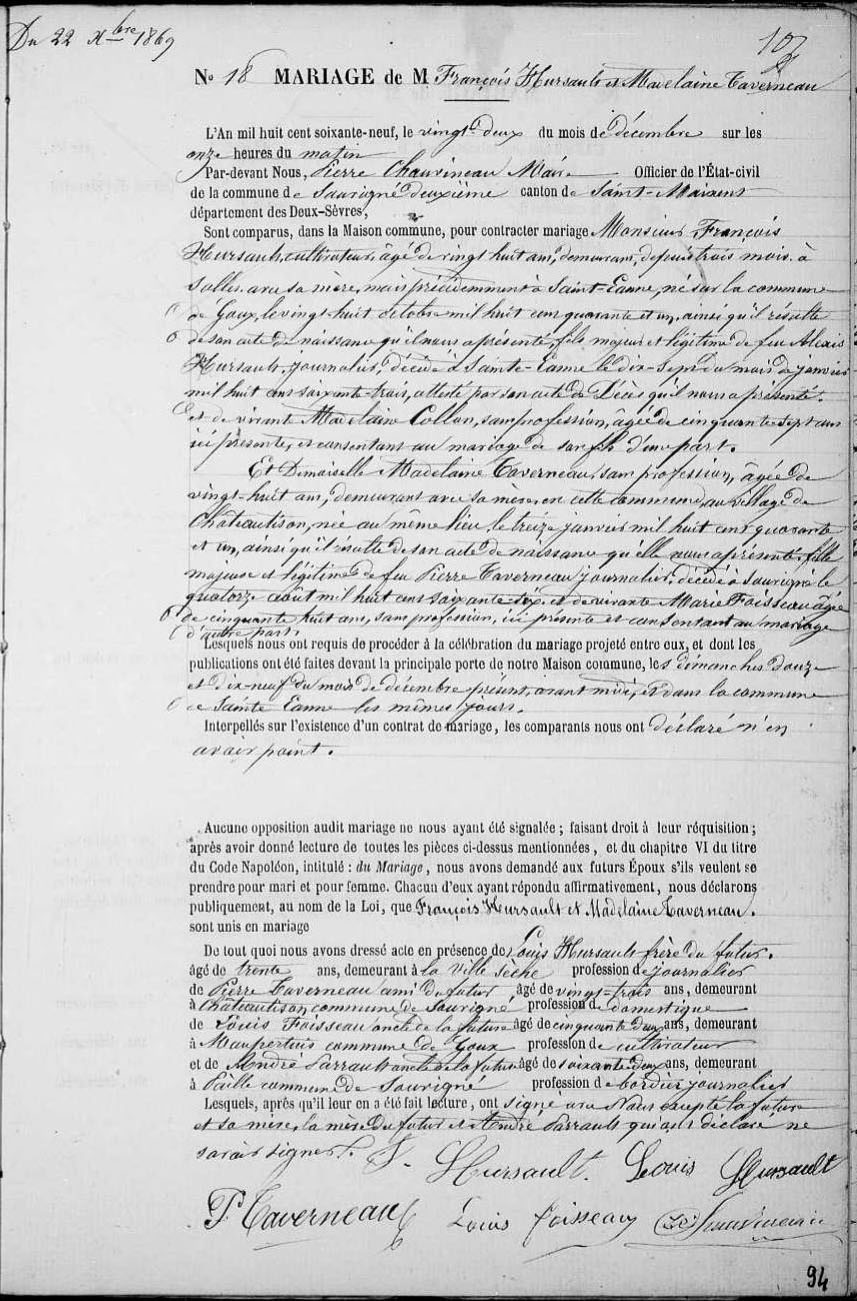 Du 22 Xbre 1869
107
No 18 MARIAGE de M François Hursault et Madelaine Taverneau
L'An mil huit cent soixante-neuf, le vingt-deux du mois de décembre sur les
onze heures du matin
Par-devant Nous, Pierre Chauvineau Maire Officier de l'État-civil
de la commune de Souvigné deuxième canton de Saint-Maixent
département des Deux-Sèvres,
Sont comparus, dans la Maison commune, pour contracter mariage Monsieur François
Hursault, cultivateur, âgé de vingt huit ans, demeurant, depuis trois mois à
Salles avec sa mère, mais précédemment à Sainte-Eanne, né sur la commune
de Goux, le vingt-huit octobre mil huit cent quarante et un, ainsi qu'il résulte
de son acte de naissance qu'il nous a présenté, fils majeur et légitime de feu Alexis
Hursault, journalier, décédé à Sainte-Eanne le dix-sept du mois de janvier
mil huit cent soixante-trois, attesté par son acte de Décès qu'il nous a présenté.
Et de vivante Madelaine Collon, sans profession, âgée de cinquante sept ans
ici présente, et consentant au mariage de son fils d'une part.
Et Demoiselle Madelaine Taverneau, sans profession, âgée de
vingt-huit ans, demeurant avec sa mère, en cette commune, au village de
Châteautison, née au même lieu, le treize janvier mil huit cent quarante
et un, ainsi qu'il résulte de son acte de naissance qu'elle nous a présenté, fille
majeure et légitime de feu Pierre Taverneau journalier, décédé à Souvigné le
quatorze août mil huit cent soixante-six, et de vivante Marie Foisseau âgée
de cinquante huit ans, sans profession, ici présente et consentant au mariage
d'autre part.
Lesquels nous ont requis de procéder à la célébration du mariage projeté entre eux, et dont les
publications ont été faites devant la principale porte de notre Maison commune, les dimanches douze
et dix-neuf du mois de décembre présent, avant midi, et dans la commune
de Sainte Eanne les mêmes jours.
Interpellés sur l'existence d'un contrat de mariage, les comparants nous ont déclaré n'en
avoir point.
Aucune opposition audit mariage ne nous ayant été signalée ; faisant droit à leur réquisition ;
après avoir donné lecture de toutes les pièces ci-dessus mentionnées, et du chapitre VI du titre
du Code Napoléon, intitulé : du Mariage, nous avons demandé aux futurs Époux s'ils veulent se
prendre pour mari et pour femme. Chacun d'eux ayant répondu affirmativement, nous déclarons
publiquement, au nom de la Loi, que François Hursault et Madelaine Taverneau.
sont unis en mariage
De tout quoi nous avons dressé acte en présence de Louis Hursault frère du futur.
âgé de trente ans, demeurant à la Ville sèche profession de journalier
de Pierre Taverneau ami du futur âgé de vingt-trois ans, demeurant
à Châteautison commune de Souvigné profession de domestique
de Louis Foisseau oncle de la future âgé de cinquante deux ans, demeurant
à Maupertuis commune de Goux profession de cultivateur
et de André Parrault oncle de la future âgé de soixante deux ans, demeurant
à Paille commune de Souvigné profession de bordier journalier
Lesquels, après qu'il leur en a été fait lecture, ont signé avec Nous excepté la future
et sa mère, la mère du futur et André Parrault qui ont déclaré ne
savoir signer.
F. Hursault. Louis Hursault
P Taverneau Louis foisseau Chauvineau
94